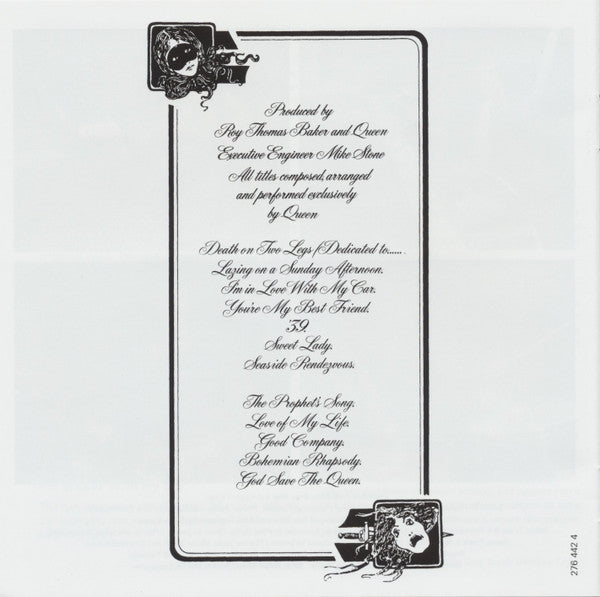 Produced by
Roy Thomas Baker and Queen
Executive Engineer Mike Stone
All titles composed, arranged
and performed exclusively
by Queen
Death on Two Legs (Dedicated to......
Lazing on a Sunday Afternoon.
I'm in Love With My Car.
You're My Best Friend.
'39.
Sweet Lady.
Seaside Rendezvous.
The Prophet's Song.
Love of My Life.
Good Company.
Bohemian Rhapsody.
God Save The Queen.
276 442 4